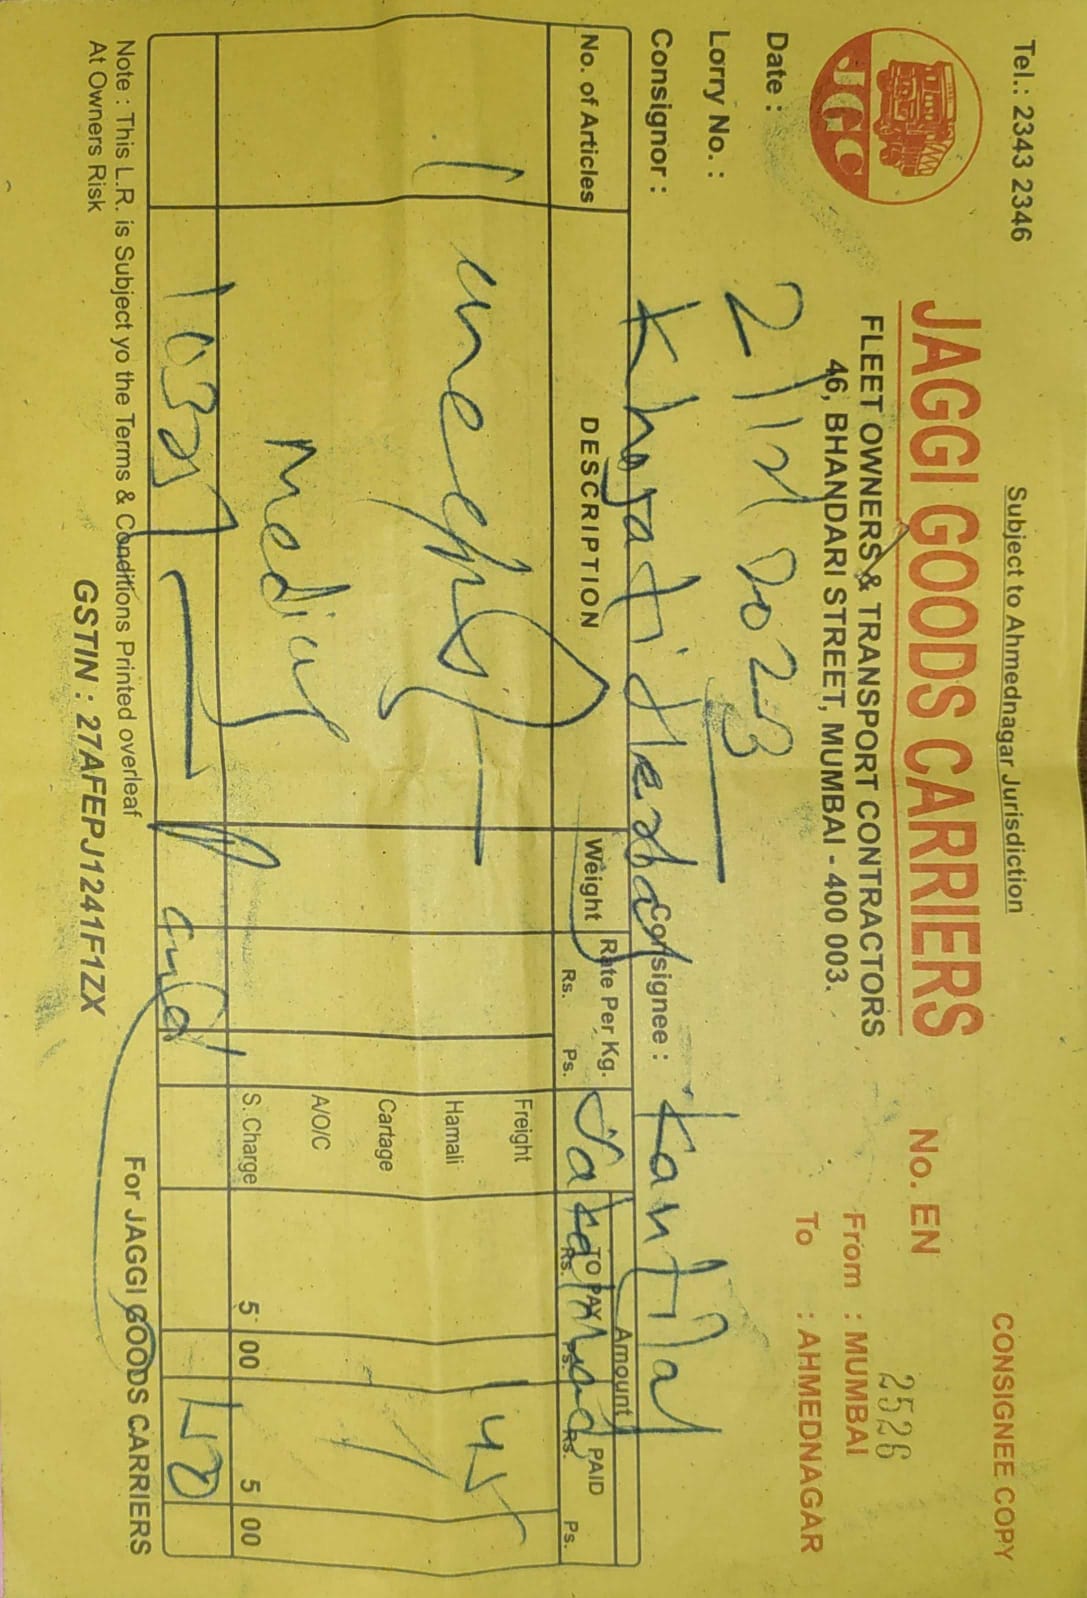 Tel.: 2343 2346
Subject to Ahmednagar Jurisdiction
CONSIGNEE COPY
JGC
JAGGI GOODS CARRIERS
FLEET OWNERS & TRANSPORT CONTRACTORS
46, BHANDARI STREET, MUMBAI - 400 003.
No. EN 2526
From : MUMBAI
To : AHMEDNAGAR
Date :
Lorry No. : 2023
Consignor : Khyati Consignee : Kantilal
No. of Articles DESCRIPTION Weight Rate Per Kg. Rs. Ps. Amount TO PAY Rs. Ps. PAID Rs. Ps.
1 Freight 145
Hamali
Cartage
A/O/C
S. Charge 5 00 5 00
150
Note : This L.R. is Subject yo the Terms & Conditions Printed overleaf
At Owners Risk
GSTIN : 27AFEPJ1241F1ZX
For JAGGI GOODS CARRIERS